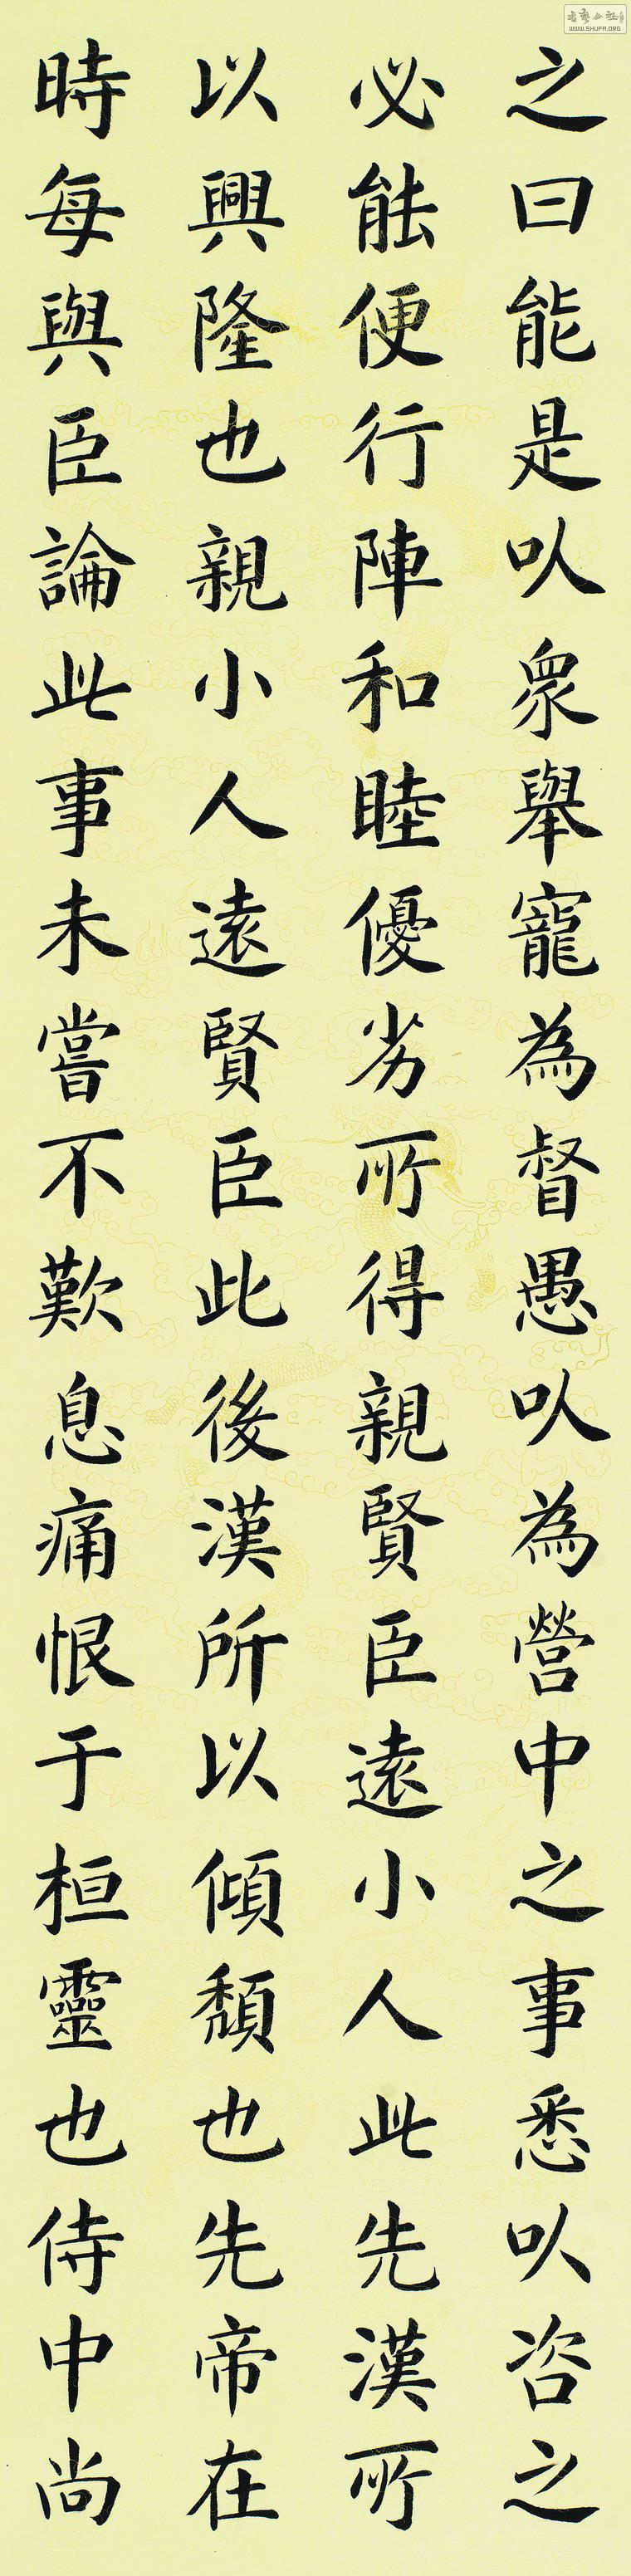 之曰能是以衆舉寵為督愚以為營中之事悉以咨之
必能使行陣和睦優劣所得親賢臣遠小人此先漢所
以興隆也親小人遠賢臣此後漢所以傾頹也先帝在
時每與臣論此事未嘗不歎息痛恨于桓靈也侍中尚
WWW.SHUFA.ORG